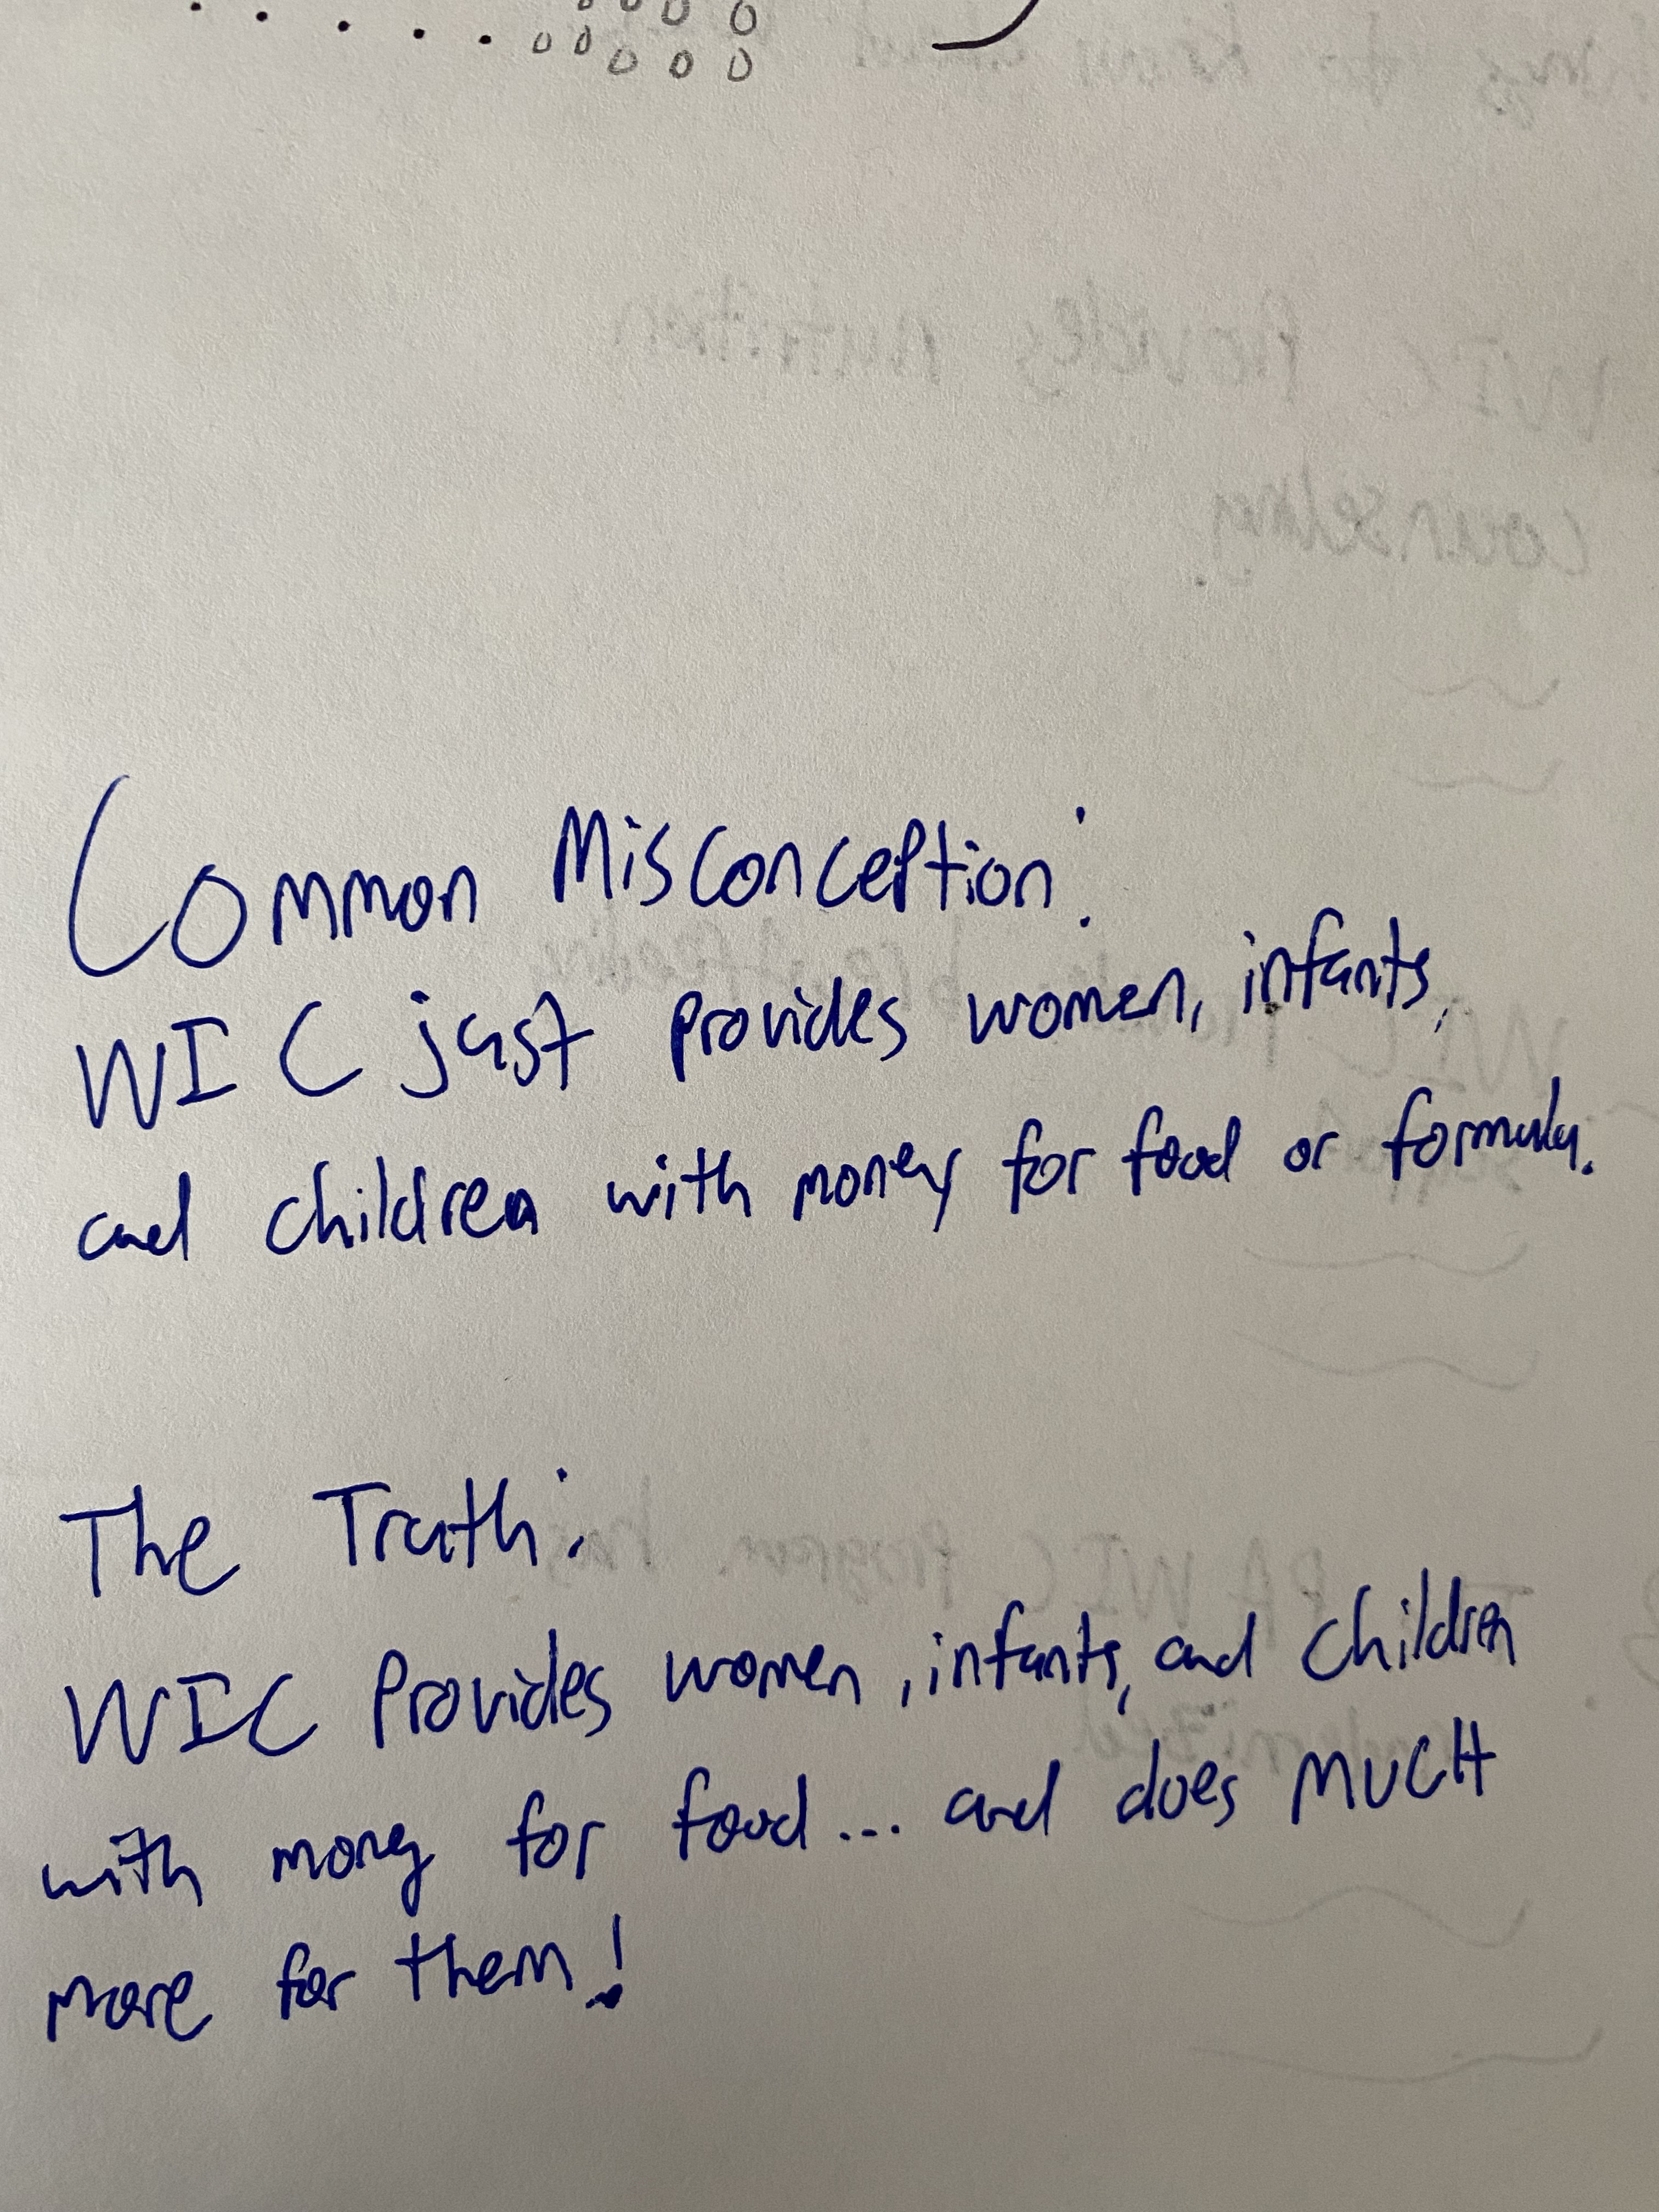 WIC provides nutrition
counseling
Common Misconception:
WIC just provides women, infants,
and children with money for food or formula.
The Truth:
WIC Provides women, infants, and children
with money for food... and does MUCH
more for them!